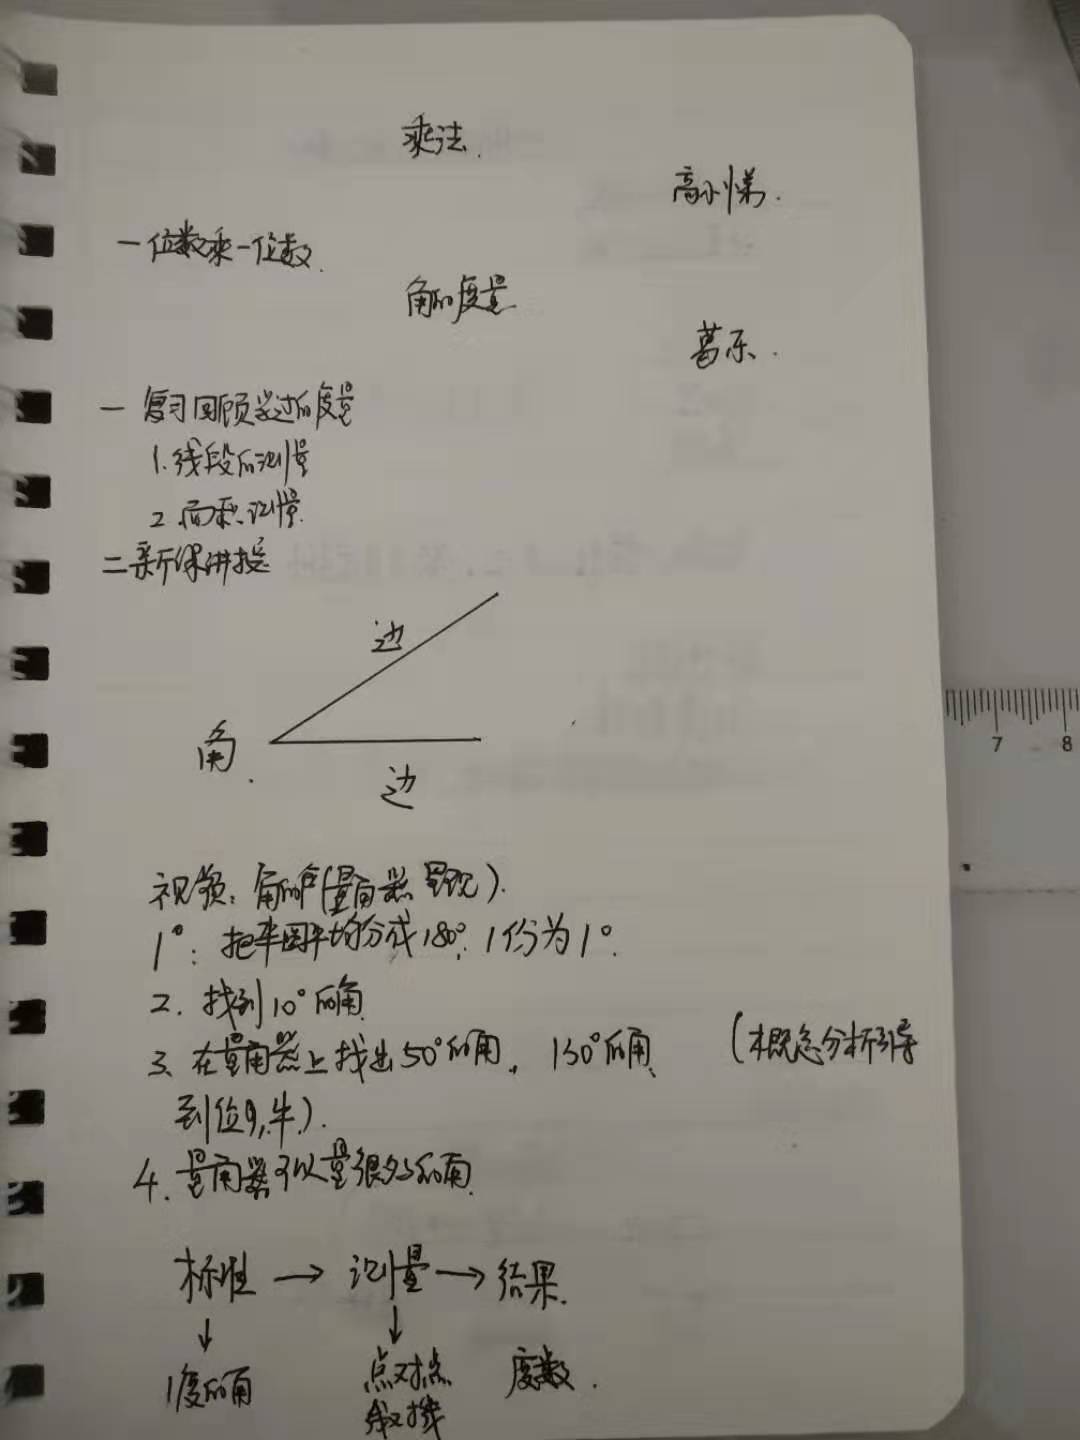 乘法.
高小娣.
一位数乘一位数.
角的度量.
葛乐.
一 复习回顾学过的度量
1.线段的测量
2.面积测量.
二新课讲授
边
角.
边
视频:角的(量角器 ).
1°: 把半圆平均分成180°, 1份为1°.
2. 找到10°的角.
3、在量角器上找出50°的角, 130°的角、 (概念分析引导
到位,牛).
4. 量角器可以量很多的角.
标准 → 测量 → 结果.
↓ ↓
1度的角 点对点 度数.